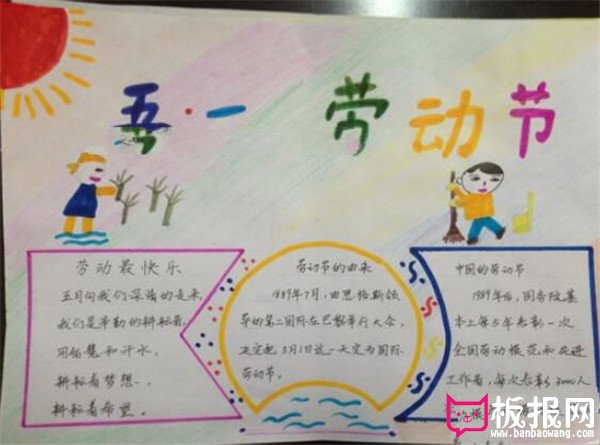 五·一 劳动节
劳动最快乐
五月向我们深情的走来
我们是辛勤的耕耘者
用智慧和汗水,
耕耘着梦想、,
耕耘着希望。
劳动节的由来
1889年7月,由恩格斯领
导的第二国际在巴黎举行大会,
决定把5月1日这一天定为国际
劳动节。
中国的劳动节
1989年后,国务院基
本上每5年表彰一次
全国劳动模范和先进
工作者,每次表彰3000人
板报网
www.banbaowang.com